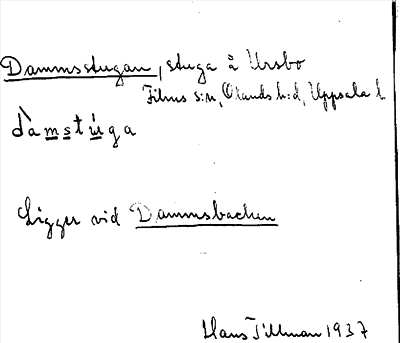 Dammsstugan, stuga å Ursbo
Films s:n, Olands h:d, Uppsala l
dàmstúga
Ligger vid Dammsbacken
Hans Tillman 1937